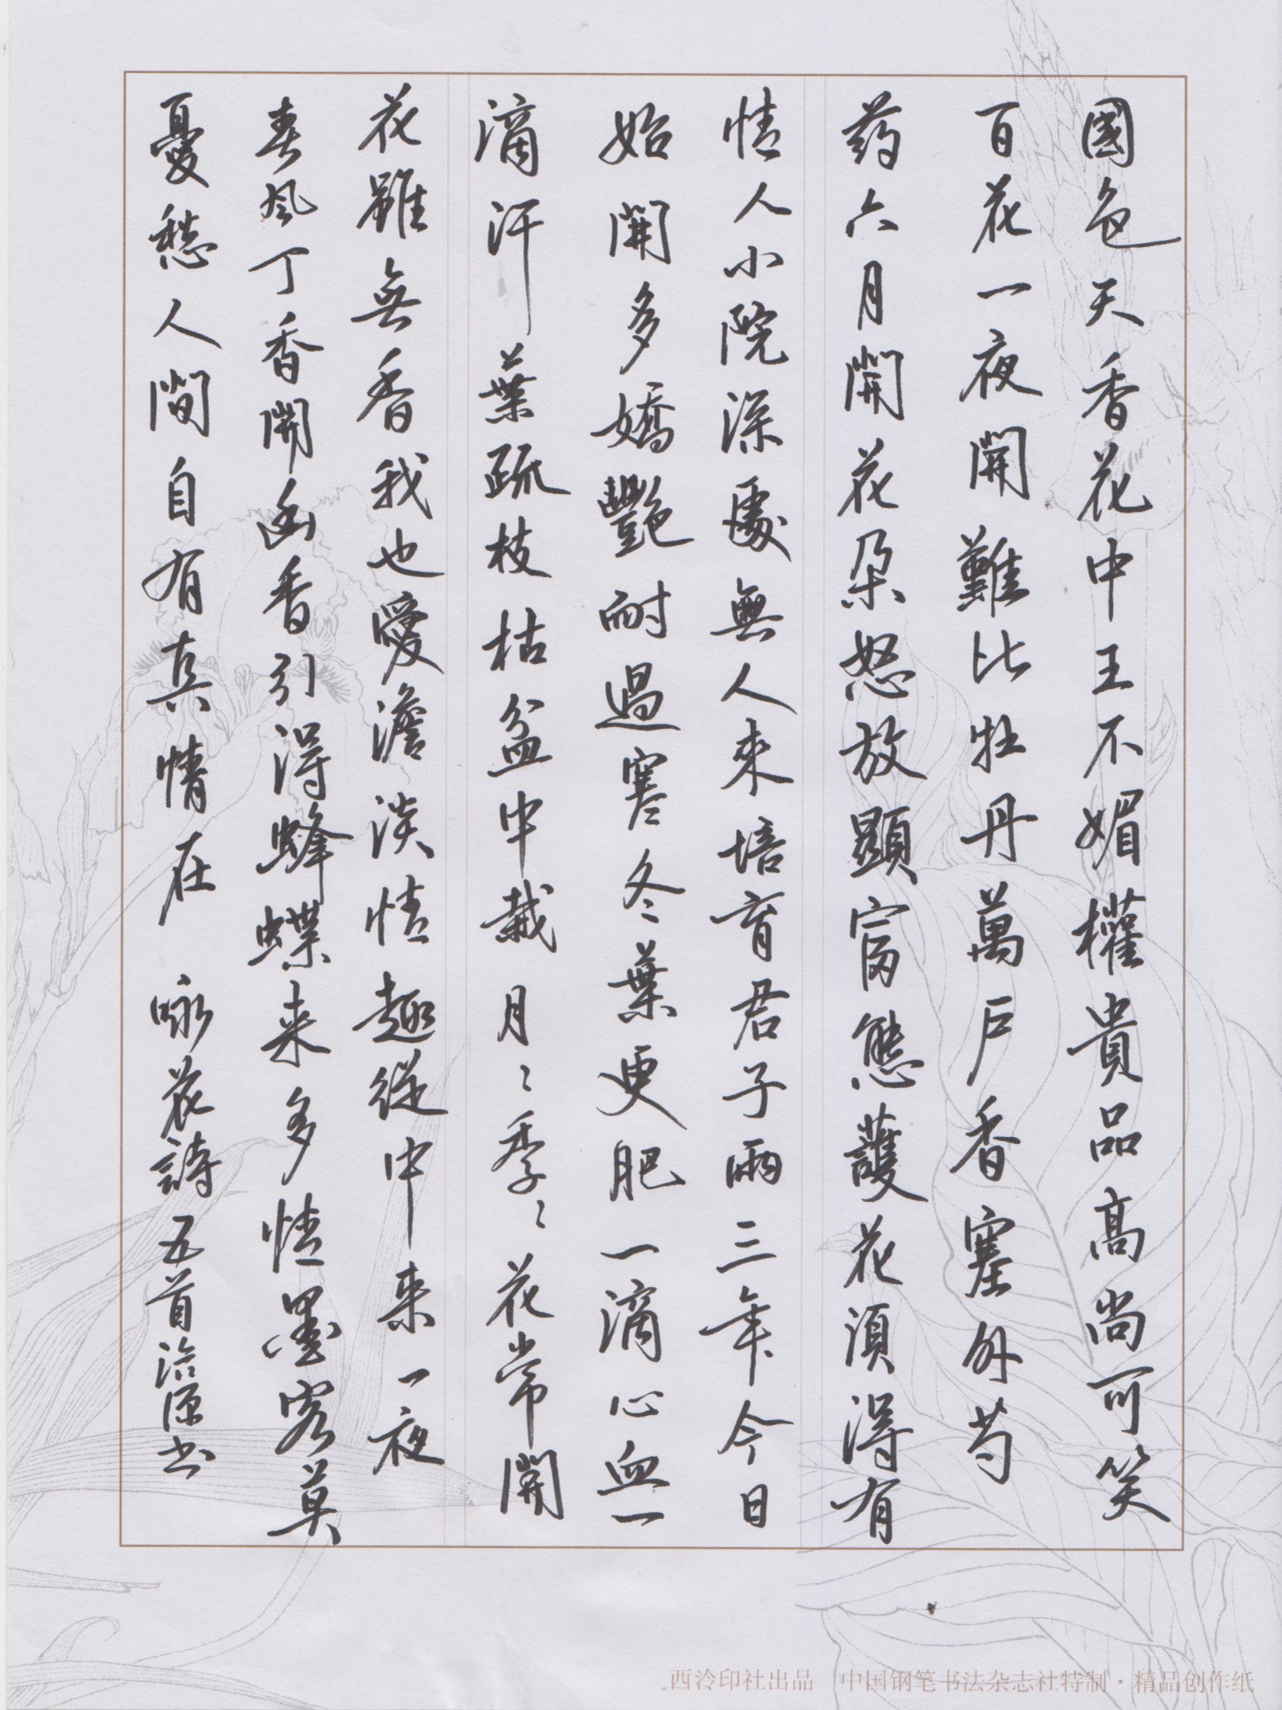 國色天香花中王不媚權貴品高尚可笑
百花一夜開難比牡丹萬戶香塞外芍
葯六月開花朵怒放顯富態護花須得有
情人小院深處無人來培育君子兩三年今日
始開多嬌艷耐過寒冬葉更肥一滴心血一
滴汗葉疏枝枯盆中栽月〻季〻花常開
花雖無香我也愛澹淡情趣從中来一夜
春風丁香開幽香引得蜂蝶来多情墨客莫
憂愁人間自有真情在 咏花詩五首治源书
西泠印社出品 中国钢笔书法杂志社特制·精品创作纸